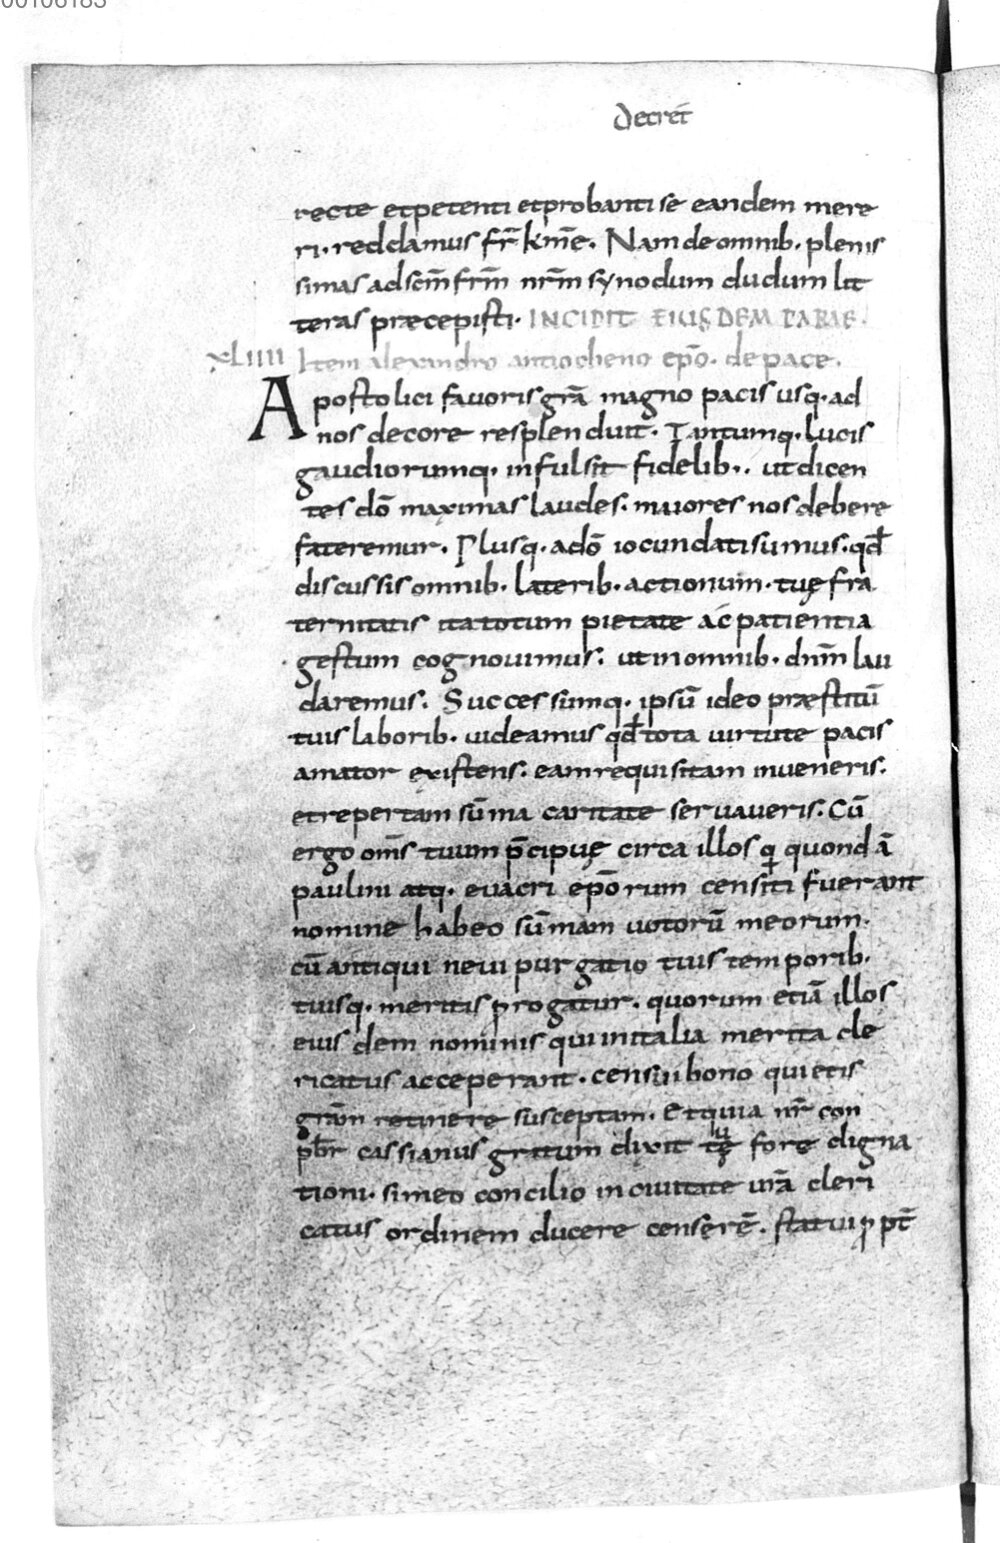 00106183
Decret̄
recte et petenti et probanti se eandem mere
ri· reddamus fr̄ km̄e. Nam de omnib· plenis
simas ad sc̄m frm̄ nr̄m synodum dudum lit
teras præcepisti· INCIPIT EIUSDEM PAPAE·
XLIIII Item alexandro antiocheno ep̄o· de pace·
Apostolici favoris gr̄a magno pacis usq· ad
nos decore resplenduit· Tantumq· lucis
gaudiorumq· infulsit fidelib·· ut dicen
tes dō maximas laudes· maiores nos debere
fateremur· Plusq· adō iocundati sumus· qd̄
discussis omnib· laterib· actionum· tuę fra
ternitatis ita totum pietate ac patientia
gestum cognovimus· ut in omnib· dnm̄ lau
daremus· Successumq· ipsū ideo præstitū
tuis laborib· videamus qd̄ tota virtute pacis
amator existens· eam requisitam inveneris·
et repertam sūma caritate servaveris· Cū
ergo om̄s tuum p̄cipuę circa illos qi quondā
paulini atq· evacri ep̄orum censiti fuerant
nomine habeo sūmam votorū meorum·
cū antiqui nevi purgatio tuis temporib·
tuisq· meritis progatur· quorum etiā illos
eius dem nominis qui in italia merita cle
ricatus acceperant· censui bono quietis
gr̄am retinere susceptam· Et quia nr̄ con
pb̄r cassianus gratum dixit tuę fore digna
tioni· si meo concilio in civitate ur̄a cleri
catus ordinem ducere censerē· statui p pt̄